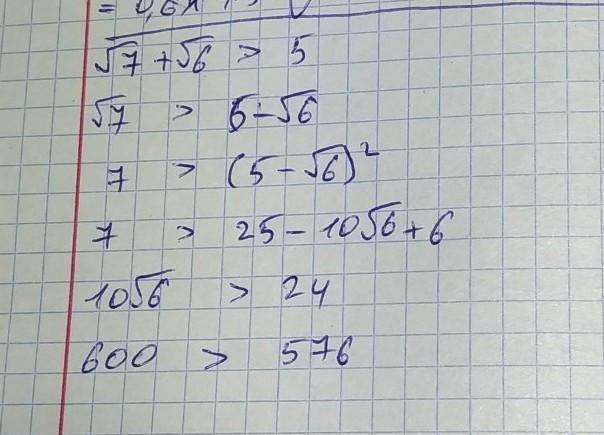 √7 + √6 > 5
√7 > 5 - √6
7 > (5 - √6)²
7 > 25 - 10√6 + 6
10√6 > 24
600 > 576